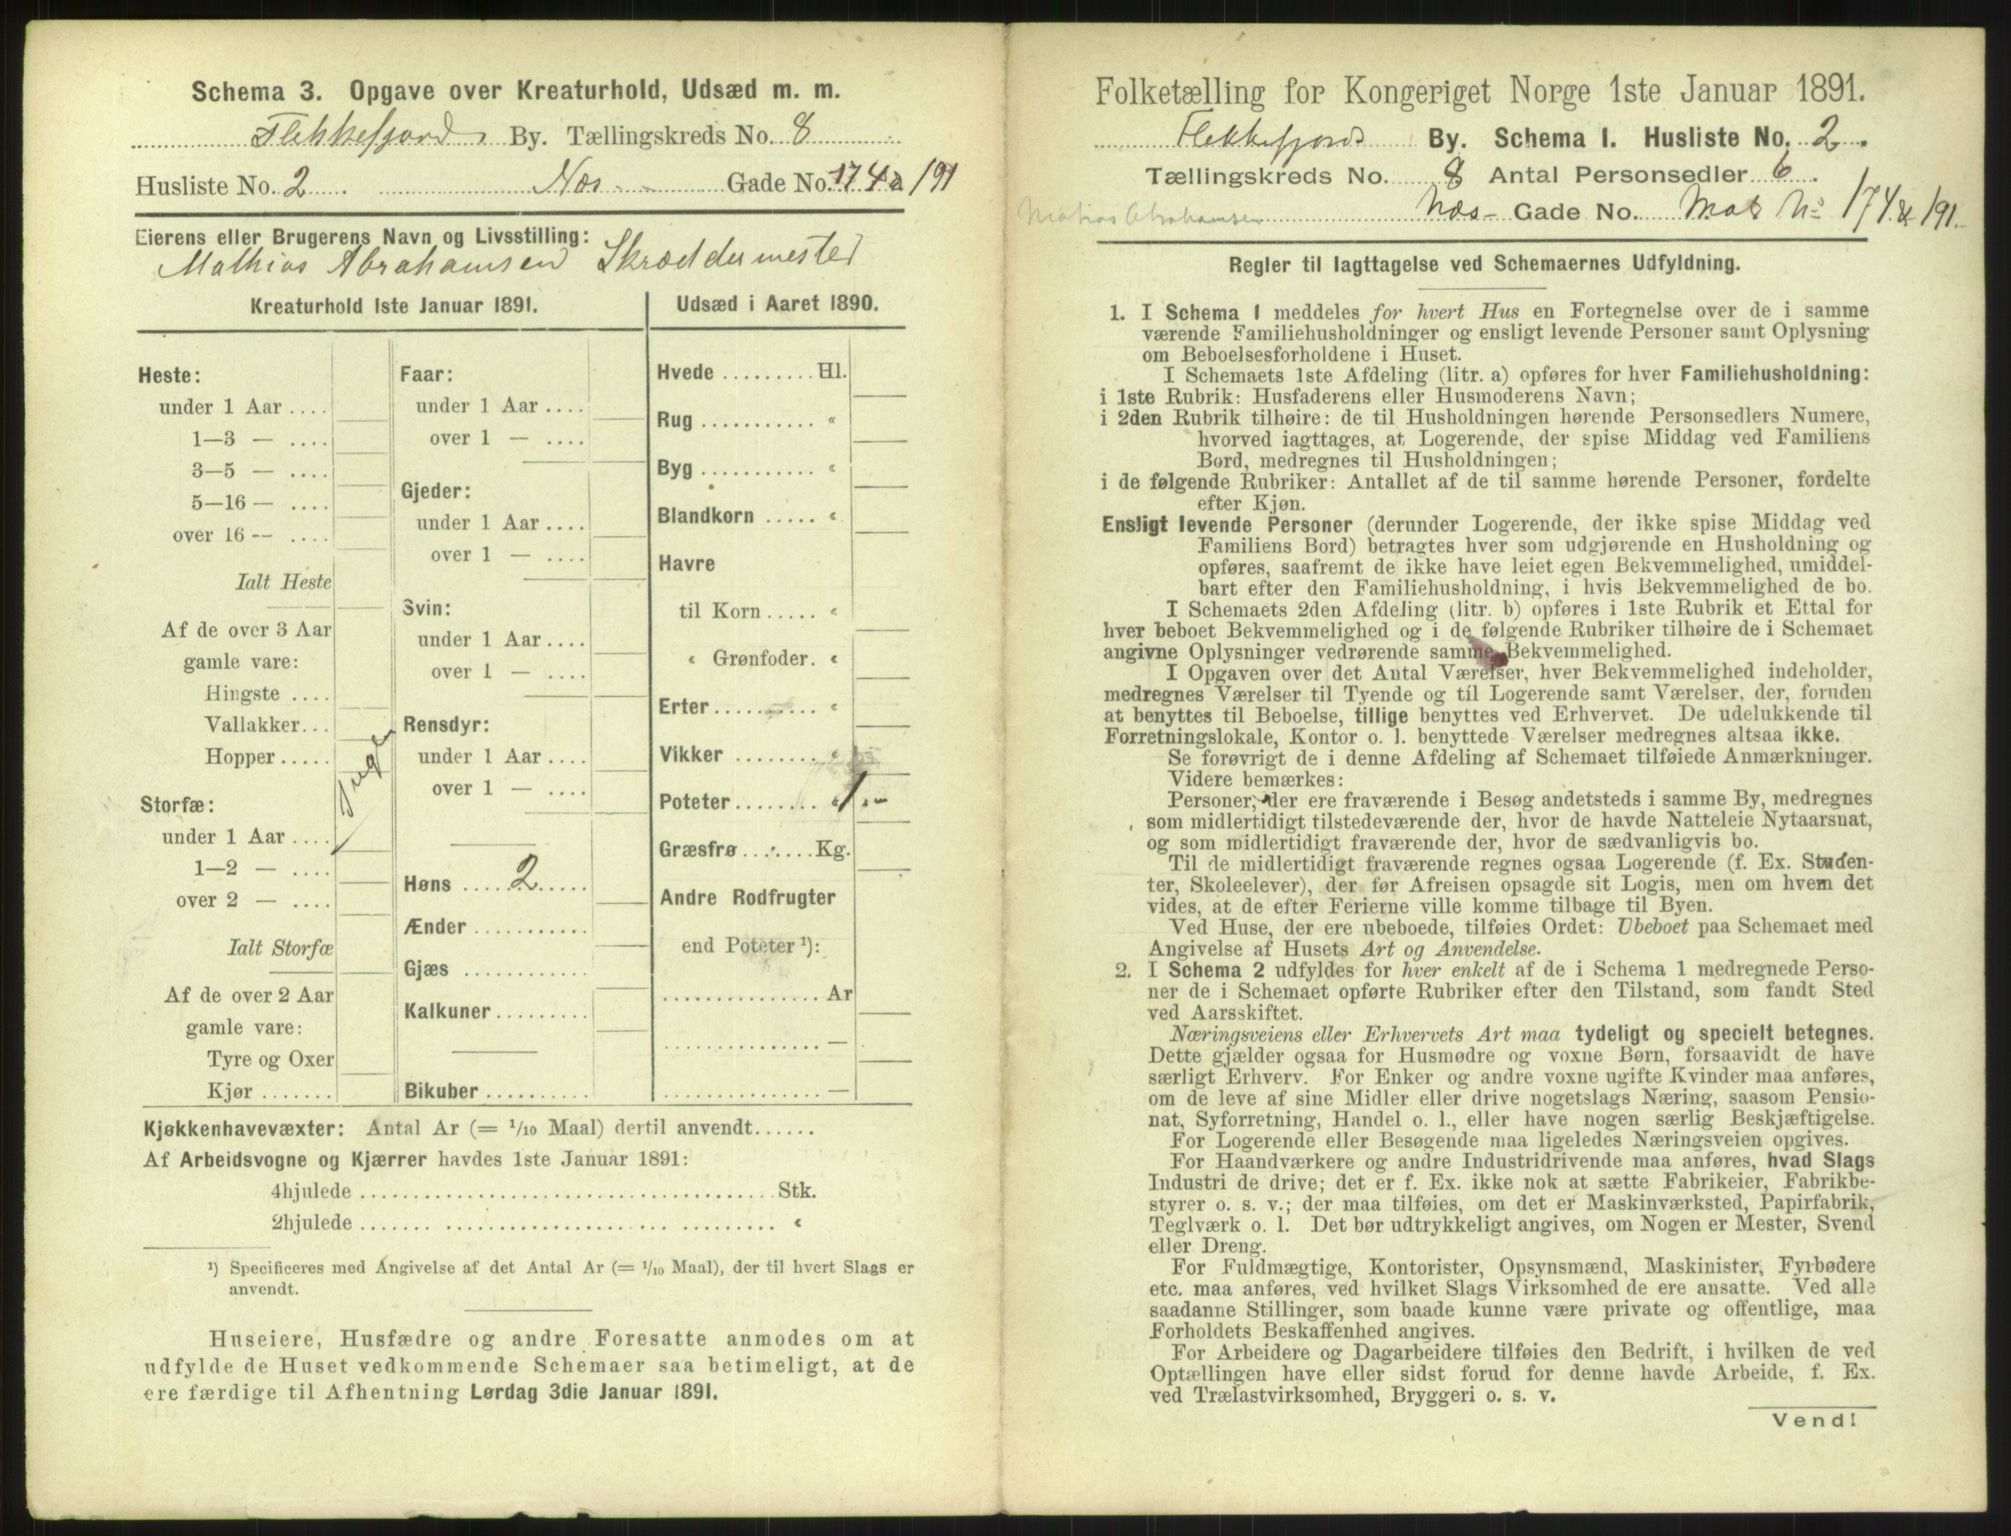 Schema 3. Opgave over Kreaturhold, Udsæd m. m.
Flekkefjords By. Tællingskreds No. 8
Husliste No. 2 Næs Gade No. 174 & 191
Eierens eller Brugerens Navn og Livsstilling:
Mathias Abrahamsen Skræddermester
Kreaturhold 1ste Januar 1891.
Heste:
under 1 Aar ....
1—3 — ....
3—5 — ....
5—16 — ....
over 16 -- ....
Ialt Heste
Af de over 3 Aar
gamle vare:
Hingste ....
Vallakker...
Hopper .....
Storfæ:
under 1 Aar ....
1—2 — ....
over 2 — ....
Ialt Storfæ
Af de over 2 Aar
gamle vare:
Tyre og Oxer
Kjør .......
Ingen
Faar:
under 1 Aar ....
over 1 — ....
Gjeder:
under 1 Aar ....
over 1 — ....
Svin:
under 1 Aar ....
over 1 — ....
Rensdyr:
under 1 Aar ....
over 1 — ....
Høns .... 2 .....
Ænder ...........
Gjæs ............
Kalkuner.........
Bikuber ..........
Udsæd i Aaret 1890.
Hvede ......... Hl.
Rug ........... «
Byg ........... «
Blandkorn ..... «
Havre
til Korn ..... «
« Grønfoder. «
Erter.......... «
Vikker ........ «
Poteter........ « 1 . —
Græsfrø ....... Kg.
Andre Rodfrugter
end Poteter ¹):
............... Ar
............... —
............... —
Kjøkkenhavevæxter: Antal Ar (= 1/10 Maal) dertil anvendt......
Af Arbeidsvogne og Kjærrer havdes 1ste Januar 1891:
4hjulede ........................................ Stk.
2hjulede ....... ................ ......... «
¹) Specificeres med Angivelse af det Antal Ar (= 1/10 Maal), der til hvert Slags er
anvendt.
Huseiere, Husfædre og andre Foresatte anmodes om at
udfylde de Huset vedkommende Schemaer saa betimeligt, at de
ere færdige til Afhentning Lørdag 3die Januar 1891.
Folketælling for Kongeriget Norge 1ste Januar 1891.
Flekkefjords By. Schema I. Husliste No. 2.
Tællingskreds No. 8 Antal Personsedler 6.
Mathias Abrahamsen Næs- Gade No. Mat No 174 & 191.
Regler til Iagttagelse ved Schemaernes Udfyldning.
1. I Schema 1 meddeles for hvert Hus en Fortegnelse over de i samme
værende Familiehusholdninger og ensligt levende Personer samt Oplysning
om Beboelsesforholdene i Huset.
I Schemaets 1ste Afdeling (litr. a) opføres for hver Familiehusholdning:
i 1ste Rubrik: Husfaderens eller Husmoderens Navn;
i 2den Rubrik tilhøire: de til Husholdningen hørende Personsedlers Numere,
hvorved iagttages, at Logerende, der spise Middag ved Familiens
Bord, medregnes til Husholdningen;
i de følgende Rubriker: Antallet af de til samme hørende Personer, fordelte
efter Kjøn.
Ensligt levende Personer (derunder Logerende, der ikke spise Middag ved
Familiens Bord) betragtes hver som udgjørende en Husholdning og
opføres, saafremt de ikke have leiet egen Bekvemmelighed, umiddel-
bart efter den Familiehusholdning, i hvis Bekvemmelighed de bo.
I Schemaets 2den Afdeling (litr. b) opføres i 1ste Rubrik et Ettal for
hver beboet Bekvemmelighed og i de følgende Rubriker tilhøire de i Schemaet
angivne Oplysninger vedrørende samme Bekvemmelighed.
I Opgaven over det Antal Værelser, hver Bekvemmelighed indeholder,
medregnes Værelser til Tyende og til Logerende samt Værelser, der, foruden
at benyttes til Beboelse, tillige benyttes ved Erhvervet. De udelukkende til
Forretningslokale, Kontor o. l. benyttede Værelser medregnes altsaa ikke.
Se forøvrigt de i denne Afdeling af Schemaet tilføiede Anmærkninger.
Videre bemærkes:
Personer, der ere fraværende i Besøg andetsteds i samme By, medregnes
som midlertidigt tilstedeværende der, hvor de havde Natteleie Nytaarsnat,
og som midlertidigt fraværende der, hvor de sædvanligvis bo.
Til de midlertidigt fraværende regnes ogsaa Logerende (f. Ex. Studen-
ter, Skoleelever), der før Afreisen opsagde sit Logis, men om hvem det
vides, at de efter Ferierne ville komme tilbage til Byen.
Ved Huse, der ere ubeboede, tilføies Ordet: Ubeboet paa Schemaet med
Angivelse af Husets Art og Anvendelse.
2. I Schema 2 udfyldes for hver enkelt af de i Schema 1 medregnede Perso-
ner de i Schemaet opførte Rubriker efter den Tilstand, som fandt Sted
ved Aarsskiftet.
Næringsveiens eller Erhvervets Art maa tydeligt og specielt betegnes.
Dette gjælder ogsaa for Husmødre og voxne Børn, forsaavidt de have
særligt Erhverv. For Enker og andre voxne ugifte Kvinder maa anføres,
om de leve af sine Midler eller drive nogetslags Næring, saasom Pensio-
nat, Syforretning, Handel o. l., eller have nogen særlig Beskjæftigelse.
For Logerende eller Besøgende maa ligeledes Næringsveien opgives.
For Haandværkere og andre Industridrivende maa anføres, hvad Slags
Industri de drive; det er f. Ex. ikke nok at sætte Fabrikeier, Fabrikbe-
styrer o. s. v.; der maa tilføies, om det er Maskinværksted, Papirfabrik,
Teglværk o. l. Det bør udtrykkeligt angives, om Nogen er Mester, Svend
eller Dreng.
For Fuldmægtige, Kontorister, Opsynsmænd, Maskinister, Fyrbødere
etc. maa anføres, ved hvilket Slags Virksomhed de ere ansatte. Ved alle
saadanne Stillinger, som baade kunne være private og offentlige, maa
Forholdets Beskaffenhed angives.
For Arbeidere og Dagarbeidere tilføies den Bedrift, i hvilken de ved
Optællingen have eller sidst forud for denne havde Arbeide, f. Ex.
ved Trælastvirksomhed, Bryggeri o. s. v.
Vend!